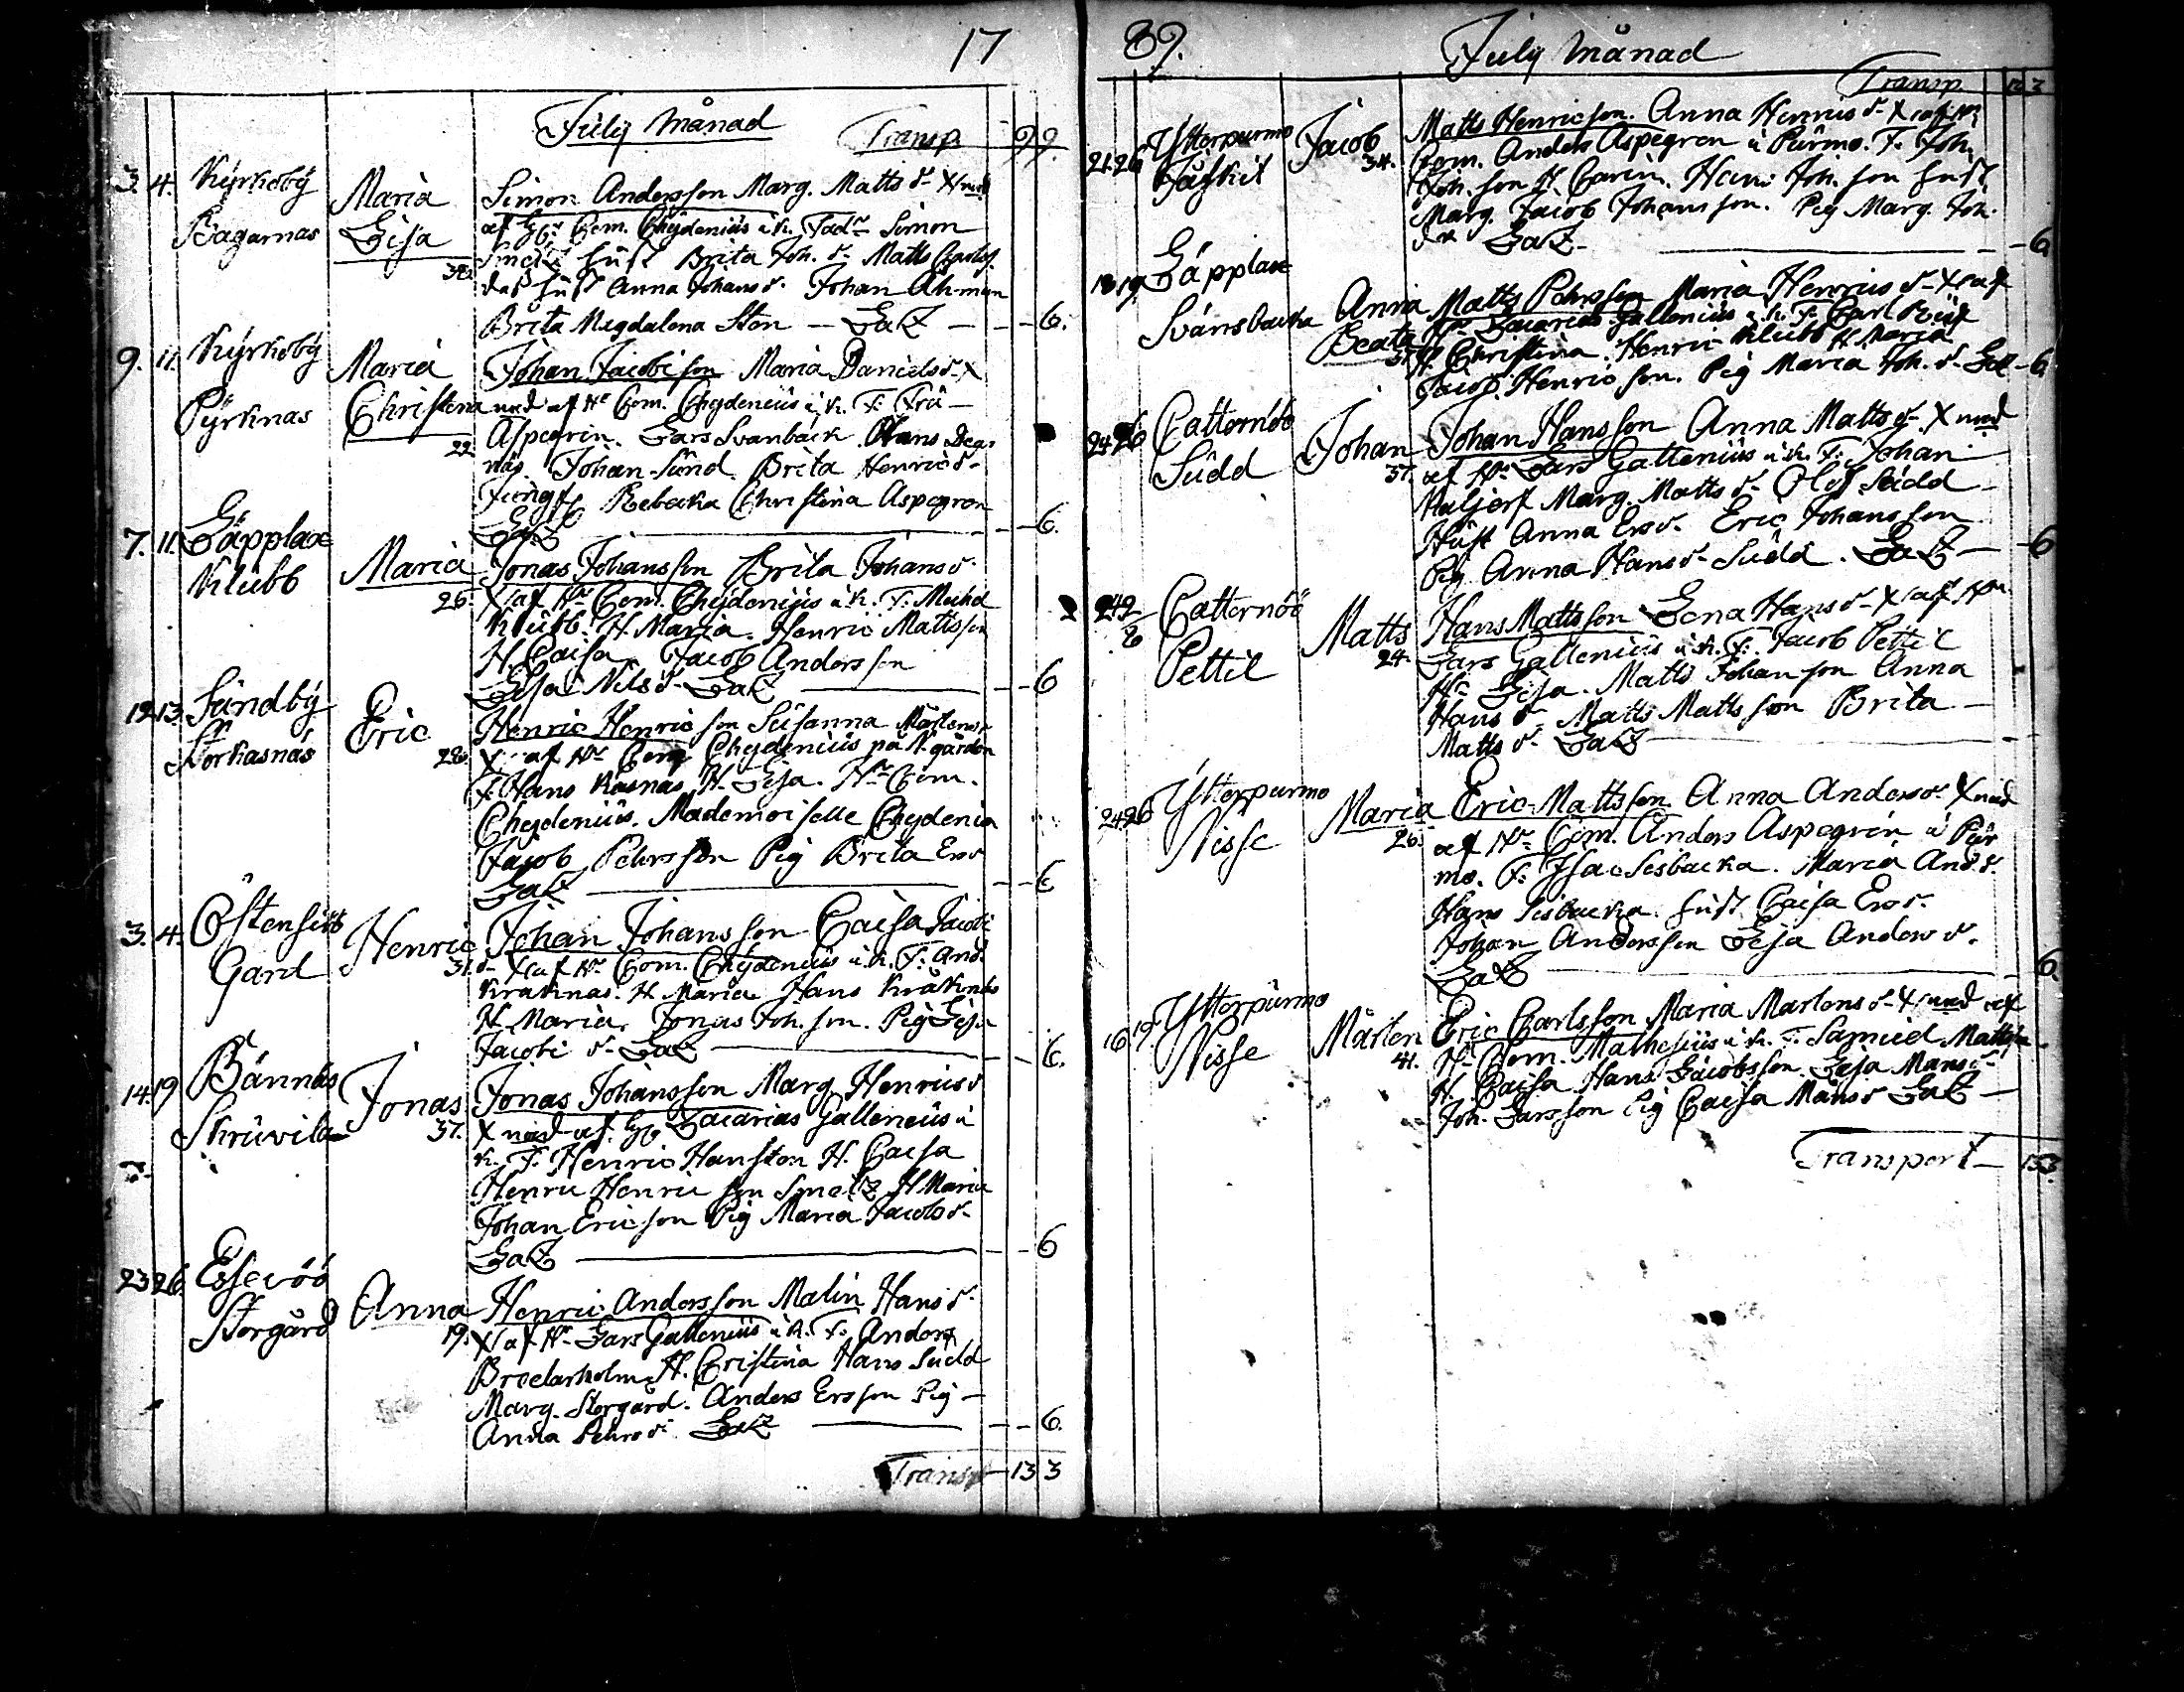 17
July Månad
Transp. 99.
3. 4. Kyrkoby Bagarnas
Maria Lisa 32.
Simon Andersson Marg. Matts d.
af Com. Chydenius i K. Fadr. Simon
Smeds hust Brita Joh. d. Matts
hust Anna Johans d. Johan Åhman
Brita Magdalena Sten - LaZ - - - 6.
9. 11. Kyrkoby Pyrknas
Maria Christina 22
Johan Jacobison Maria Daniels d. X
und af Hr Com. Chydenius i K. F. Fru
Aspegrén. Lars Svanbäck Hans
Johan Sund. Brita Henrics d.
Jungf. Rebecka Christina Aspegren
LaZ - - 6.
7. 11. Läpplax Klubb
Maria 26.
Jonas Johansson Brita Johans d.
X af Hr Com. Chydenius i K. F. Michel
Klubb. H. Maria. Henric Mattsson
H. Caisa Jacob Andersson
Lisa Nils d. LaZ - - 6
12 13. Sundby Storkasnäs
Eric 28.
Henric Henricsson Susanna Mårtens d.
X af Hr Com. Chydenius på N. gården
F. Hans Kåsnas H. Lisa. Hr Com.
Chydenius. Mademoiselle Chydenia
Jacob Pehrsson Pig Brita Ers d.
LaZ - - 6
3. 4. Östensiö Gård
Henric 31.
Johan Johansson Caisa Jacobi
d. X af Hr Com. Chydenius i K. F. And.
Kråknas. H. Maria Hans Kråknäs
H. Maria. Jonas Joh. son. Pig Lisa
Jacobi d. LaZ - - 6.
14. 19 Bännäs Skruvila
Jonas 37.
Jonas Johansson Marg. Henrics d
X und af Zacarias Gallenius i
K. F. Henric Hansson H. Caisa
Henric Henricsson Smeds H Maria
Johan Ericsson Pig Maria Jacobs d.
LaZ - - 6
23 26. Esseröö Storgård
Anna 19.
Henric Andersson Malin Hans d.
X af Hr Lars Gallenius i K. F. Anders
Bredarholm H. Cristina Hans Sudd
Marg. Storgård. Anders Ersson Pig
Anna Pehrs d. LaZ - - 6.
Transp 13 3
89.
July Månad
Transp. 13 3
21. 26 Ytterpurmo
Jacob 34.
Matts Henricson. Anna Henrics d. X af Hr
Com. Anders Aspegren i Purmo. F. Joh.
Joh. son H. Carin. Hans Joh. son hust
Marg. Jacob Johansson. Pig Marg. Joh.
dr LaZ - 6
18 19. Läpplax Svänsbacka
Anna Beata 31
Matts Pehrsson Maria Henrics d. X af
Hr Zacarias Gallenius i K. F. Carl
H. Christina. Henric Klubb H Maria
Jacop. Henricson. Pig Maria Joh. d. LaZ - 6
24 26 Catternöö Sudd
Johan 37.
Johan Hansson Anna Matts d. X und
af Hr Lars Gallenius i K. F. Johan
Marg. Matts d. Olof Sudd
Hust Anna Ers d. Eric Johansson
Pig Anna Hans d. Sudd. LaZ - 6
24 2/8 Catternöö Pettil
Matts 24.
Hans Mattsson Lena Hans d. X af Hr
Lars Gallenius i K. F. Jacob Pettil
Hr Lisa. Matts Johansson Anna
Hans d. Matts Mattsson Brita
Matts d. LaZ
24 26 Ytterpurmo Nisse
Maria 26.
Eric Mattsson Anna Anders d. X und
af Hr Com. Anders Aspegrén i Pur
mo. F. Isac Sisbacka. Maria And. d.
Hans Sisbacka hust Caisa Ers d.
Johan Andersson Lisa Anders d.
LaZ - 6
16 19. Ytterpurmo Nisse
Mårten 41.
Eric Carlsson Maria Martens d. X und af
Hr Com. Mathesius i K. F. Samuel Mattsson
H. Caisa Hans Jacobsson. Lisa Mans d.
Joh. Larsson Pig Caisa Måns d LaZ -
Transport - 15 3